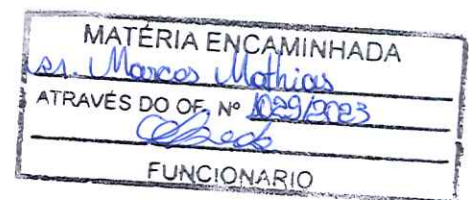 MATÉRIA ENCAMINHADA
Sr. Marcos Mathias
ATRAVÉS DO OF. Nº 1029/2023
FUNCIONARIO